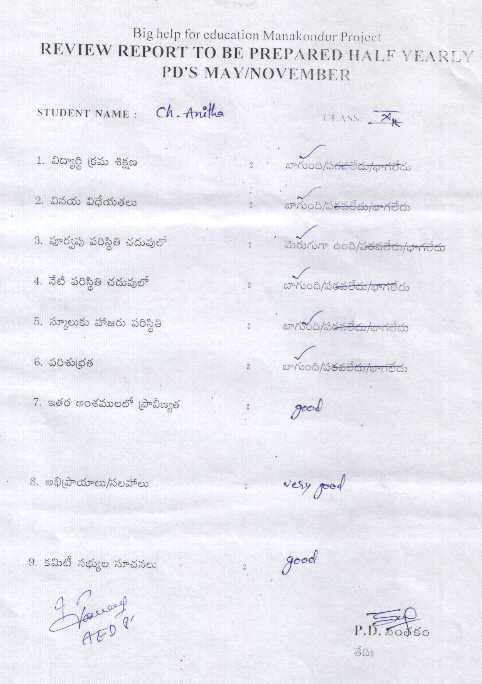 Big help for education Manakondur Project
REVIEW REPORT TO BE PREPARED HALF YEARLY
PD'S MAY/NOVEMBER
STUDENT NAME : Ch. Anitha CLASS:
1. విద్యార్థి క్రమ శిక్షణ : బాగుంది/పరవలేదు/భాగలేదు
2. వినయ విధేయతలు : బాగుంది/పరవలేదు/భాగలేదు
3. పూర్వపు పరిస్థితి చదువులో : మెరుగుగా ఉంది/పరవలేదు/భాగలేదు
4. నేటి పరిస్థితి చదువులో : బాగుంది/పరవలేదు/భాగలేదు
5. స్కూలుకు హాజరు పరిస్థితి : బాగుంది/పరవలేదు/భాగలేదు
6. పరిశుభ్రత : బాగుంది/పరవలేదు/భాగలేదు
7. ఇతర అంశములలో ప్రావీణ్యత : good
8. అభిప్రాయాలు/సలహాలు : very good
9. కమిటీ సభ్యుల సూచనలు : good
P.D. సంతకం
తేదిః